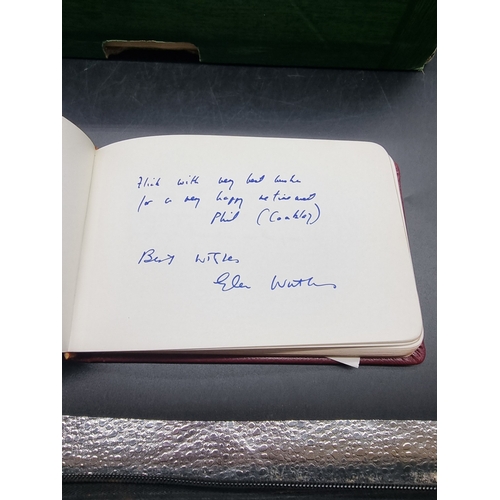 Flick with very best wishes
for a very happy retirement
Phil (Coakley)
Best wishes
Glen